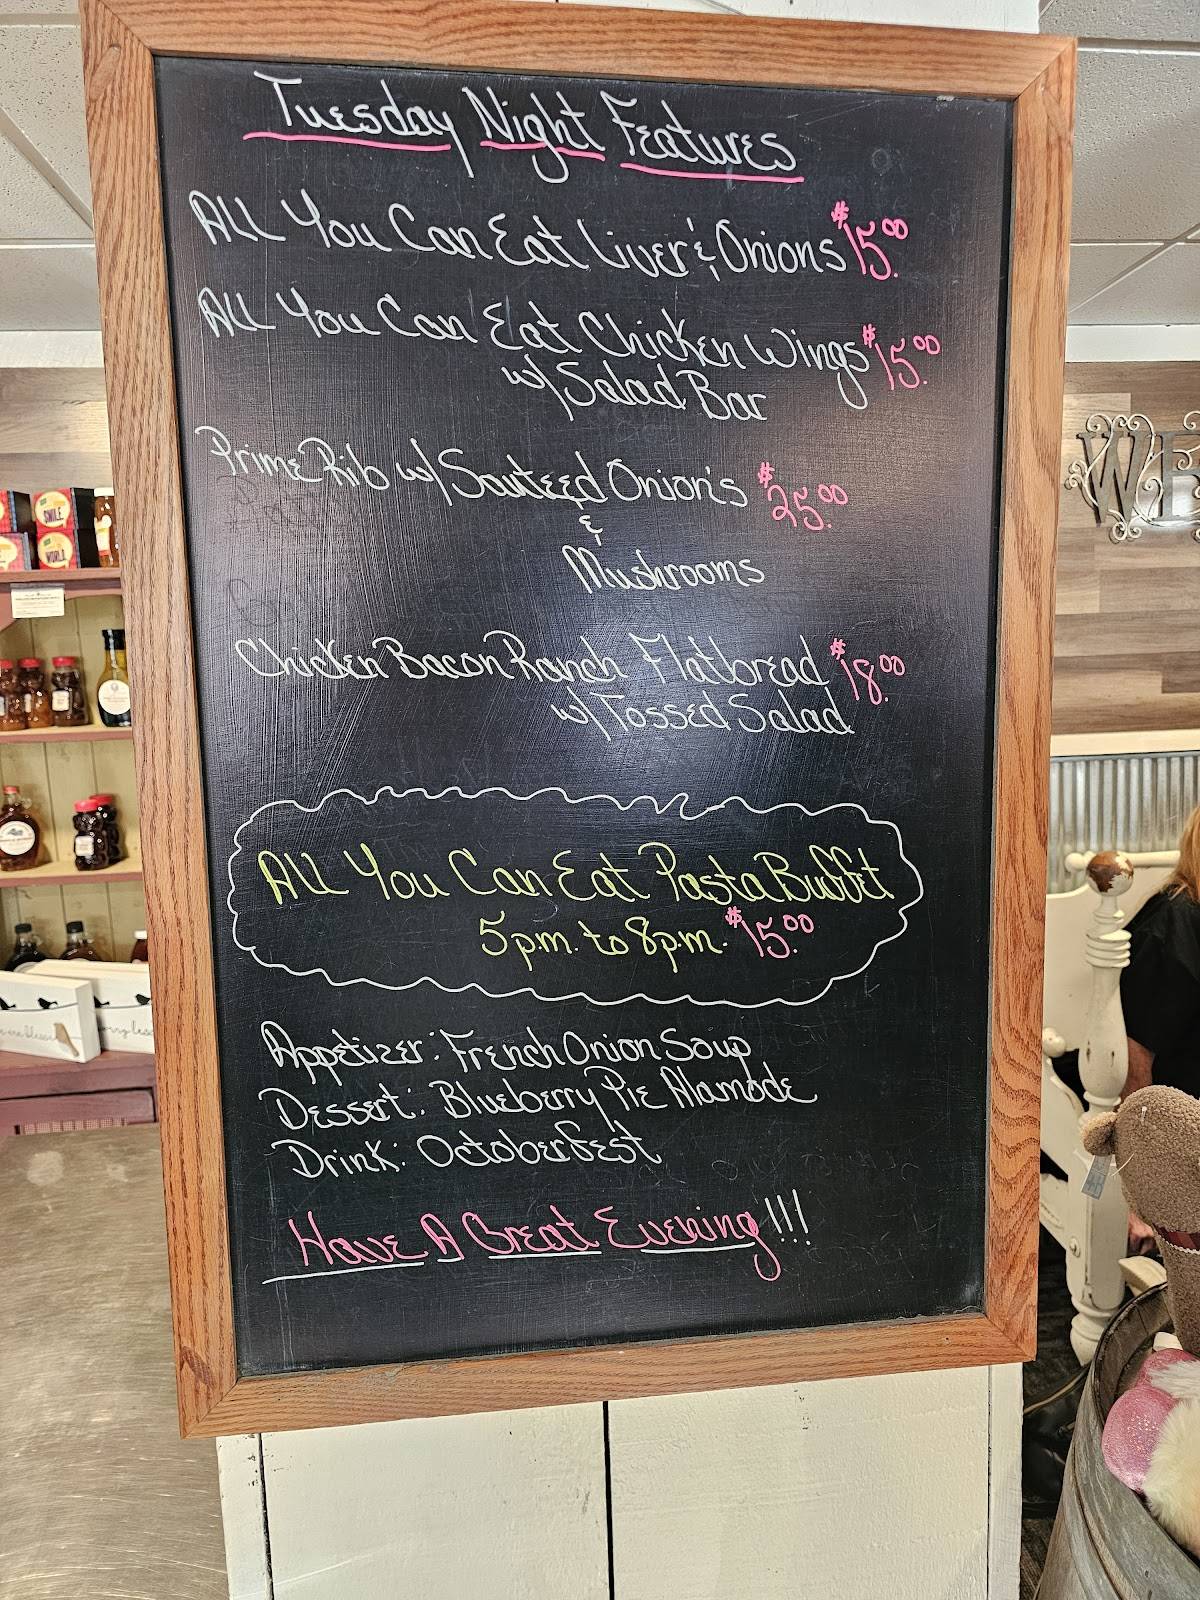 Tuesday Night Features
ALL You Can Eat Liver & Onions $15.00
ALL You Can Eat Chicken Wings $15.00
w/Salad Bar
Prime Rib w/Sauteed Onion's $25.00
&
Mushrooms
Chicken Bacon Ranch Flatbread $18.00
w/Tossed Salad
ALL You Can Eat Pasta Buffet
5p.m. to 8p.m. $15.00
Appetizer: French Onion Soup
Dessert: Blueberry Pie Alamode
Drink: Octoberfest
Have A Great Evening!!!
SMILE
WORLD
WE